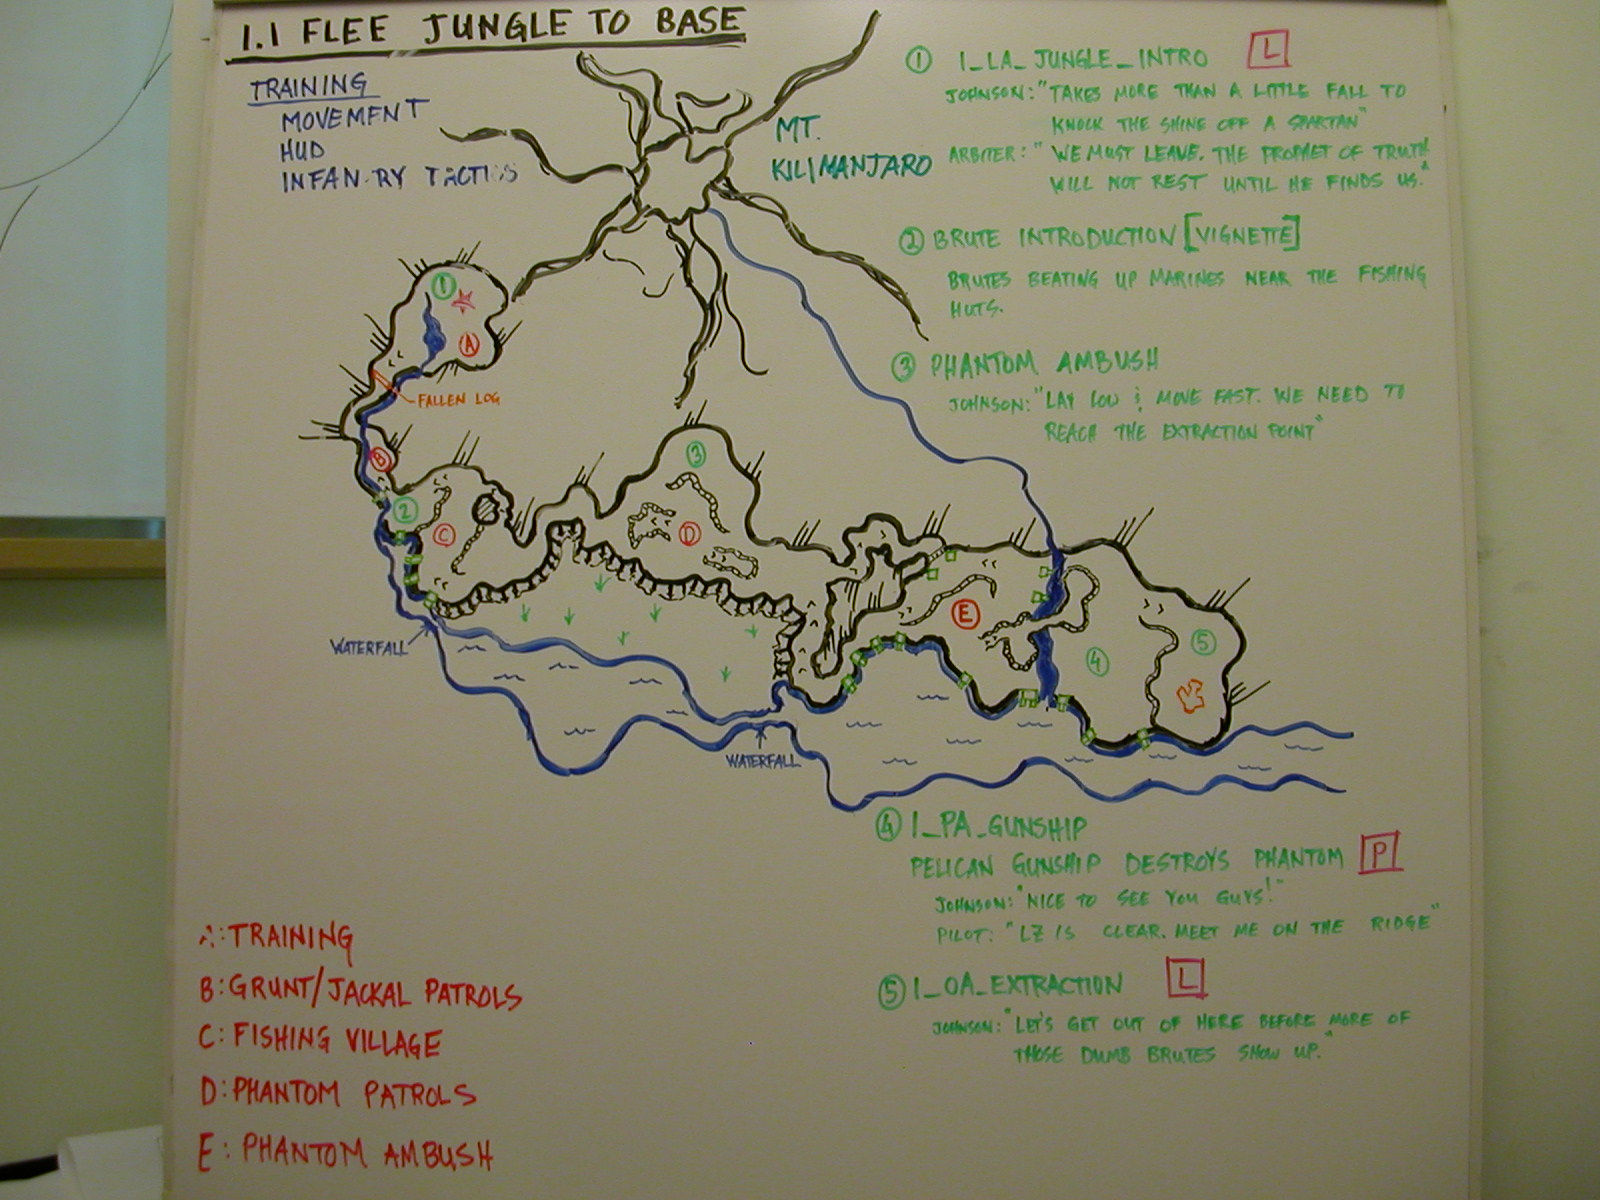 1.1 FLEE JUNGLE TO BASE
TRAINING
MOVEMENT
HUD
INFANTRY TACTICS
MT.
KILIMANJARO
① 1_LA_JUNGLE_INTRO [L]
JOHNSON: "TAKES MORE THAN A LITTLE FALL TO
KNOCK THE SHINE OFF A SPARTAN"
ARBITER: "WE MUST LEAVE. THE PROPHET OF TRUTH
WILL NOT REST UNTIL HE FINDS US."
② BRUTE INTRODUCTION [VIGNETTE]
BRUTES BEATING UP MARINES NEAR THE FISHING
HUTS.
③ PHANTOM AMBUSH
JOHNSON: "LAY LOW & MOVE FAST. WE NEED TO
REACH THE EXTRACTION POINT"
1
A
FALLEN LOG
B
2
C
3
D
E
4
5
WATERFALL
WATERFALL
④ 1_PA_GUNSHIP
PELICAN GUNSHIP DESTROYS PHANTOM [P]
JOHNSON: "NICE TO SEE YOU GUYS!"
PILOT: "LZ IS CLEAR. MEET ME ON THE RIDGE"
⑤ 1_OA_EXTRACTION [L]
JOHNSON: "LET'S GET OUT OF HERE BEFORE MORE OF
THOSE DUMB BRUTES SHOW UP."
A: TRAINING
B: GRUNT/JACKAL PATROLS
C: FISHING VILLAGE
D: PHANTOM PATROLS
E: PHANTOM AMBUSH